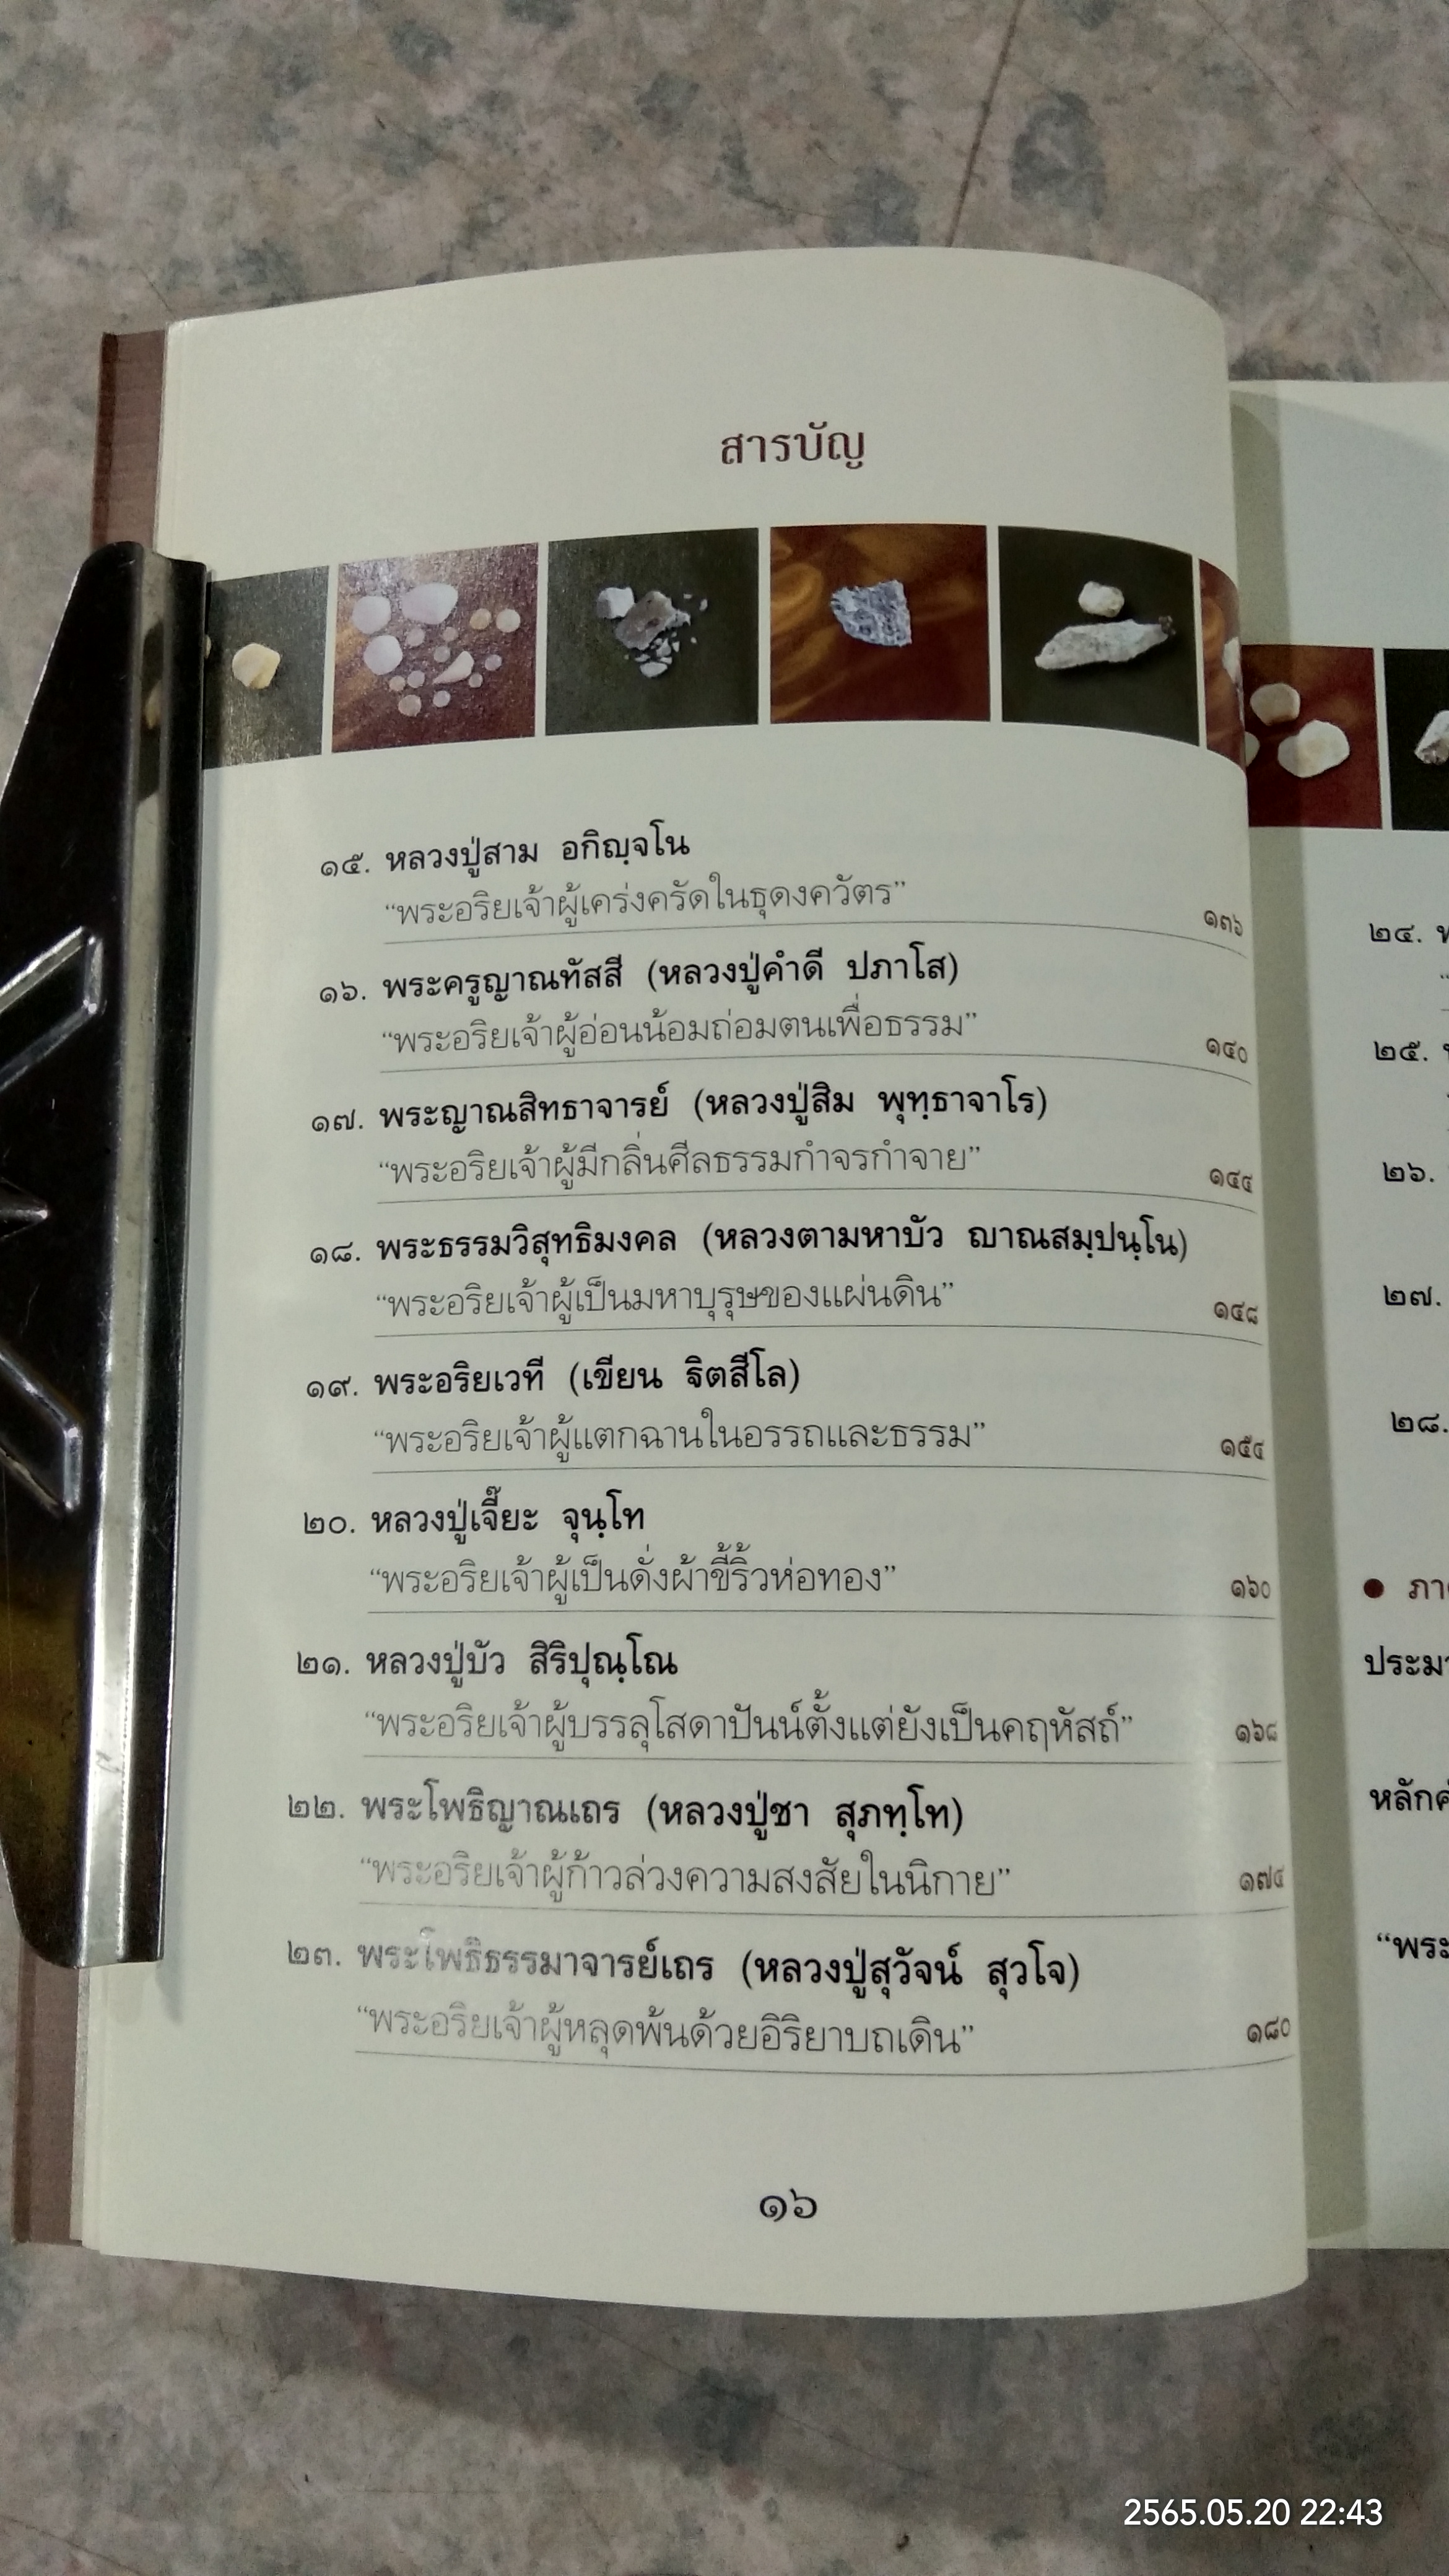 สารบัญ
๑๕. หลวงปู่สาม อกิญฺจโน
“พระอริยเจ้าผู้เคร่งครัดในธุดงควัตร”
๑๓๖
๑๖. พระครูญาณทัสสี (หลวงปู่คำดี ปภาโส)
“พระอริยเจ้าผู้อ่อนน้อมถ่อมตนเพื่อธรรม”
๑๔๐
๑๗. พระญาณสิทธาจารย์ (หลวงปู่สิม พุทฺธาจาโร)
“พระอริยเจ้าผู้มีกลิ่นศีลธรรมกำจรกำจาย”
๑๔๔
๑๘. พระธรรมวิสุทธิมงคล (หลวงตามหาบัว ญาณสมฺปนฺโน)
“พระอริยเจ้าผู้เป็นมหาบุรุษของแผ่นดิน”
๑๔๘
๑๙. พระอริยเวที (เขียน ฐิตสีโล)
“พระอริยเจ้าผู้แตกฉานในอรรถและธรรม”
๑๕๔
๒๐. หลวงปู่เจี๊ยะ จุนฺโท
“พระอริยเจ้าผู้เป็นดั่งผ้าขี้ริ้วห่อทอง”
๑๖๐
๒๑. หลวงปู่บัว สิริปุณฺโณ
“พระอริยเจ้าผู้บรรลุโสดาปันน์ตั้งแต่ยังเป็นคฤหัสถ์”
๑๖๘
๒๒. พระโพธิญาณเถร (หลวงปู่ชา สุภทฺโท)
“พระอริยเจ้าผู้ก้าวล่วงความสงสัยในนิกาย”
๑๗๔
๒๓. พระโพธิธรรมาจารย์เถร (หลวงปู่สุวัจน์ สุวโจ)
“พระอริยเจ้าผู้หลุดพ้นด้วยอิริยาบถเดิน”
๑๘๐
๑๖
๒๔.
๒๕.
๒๖.
๒๗.
๒๘.
“พระ
2565.05.20 22:43